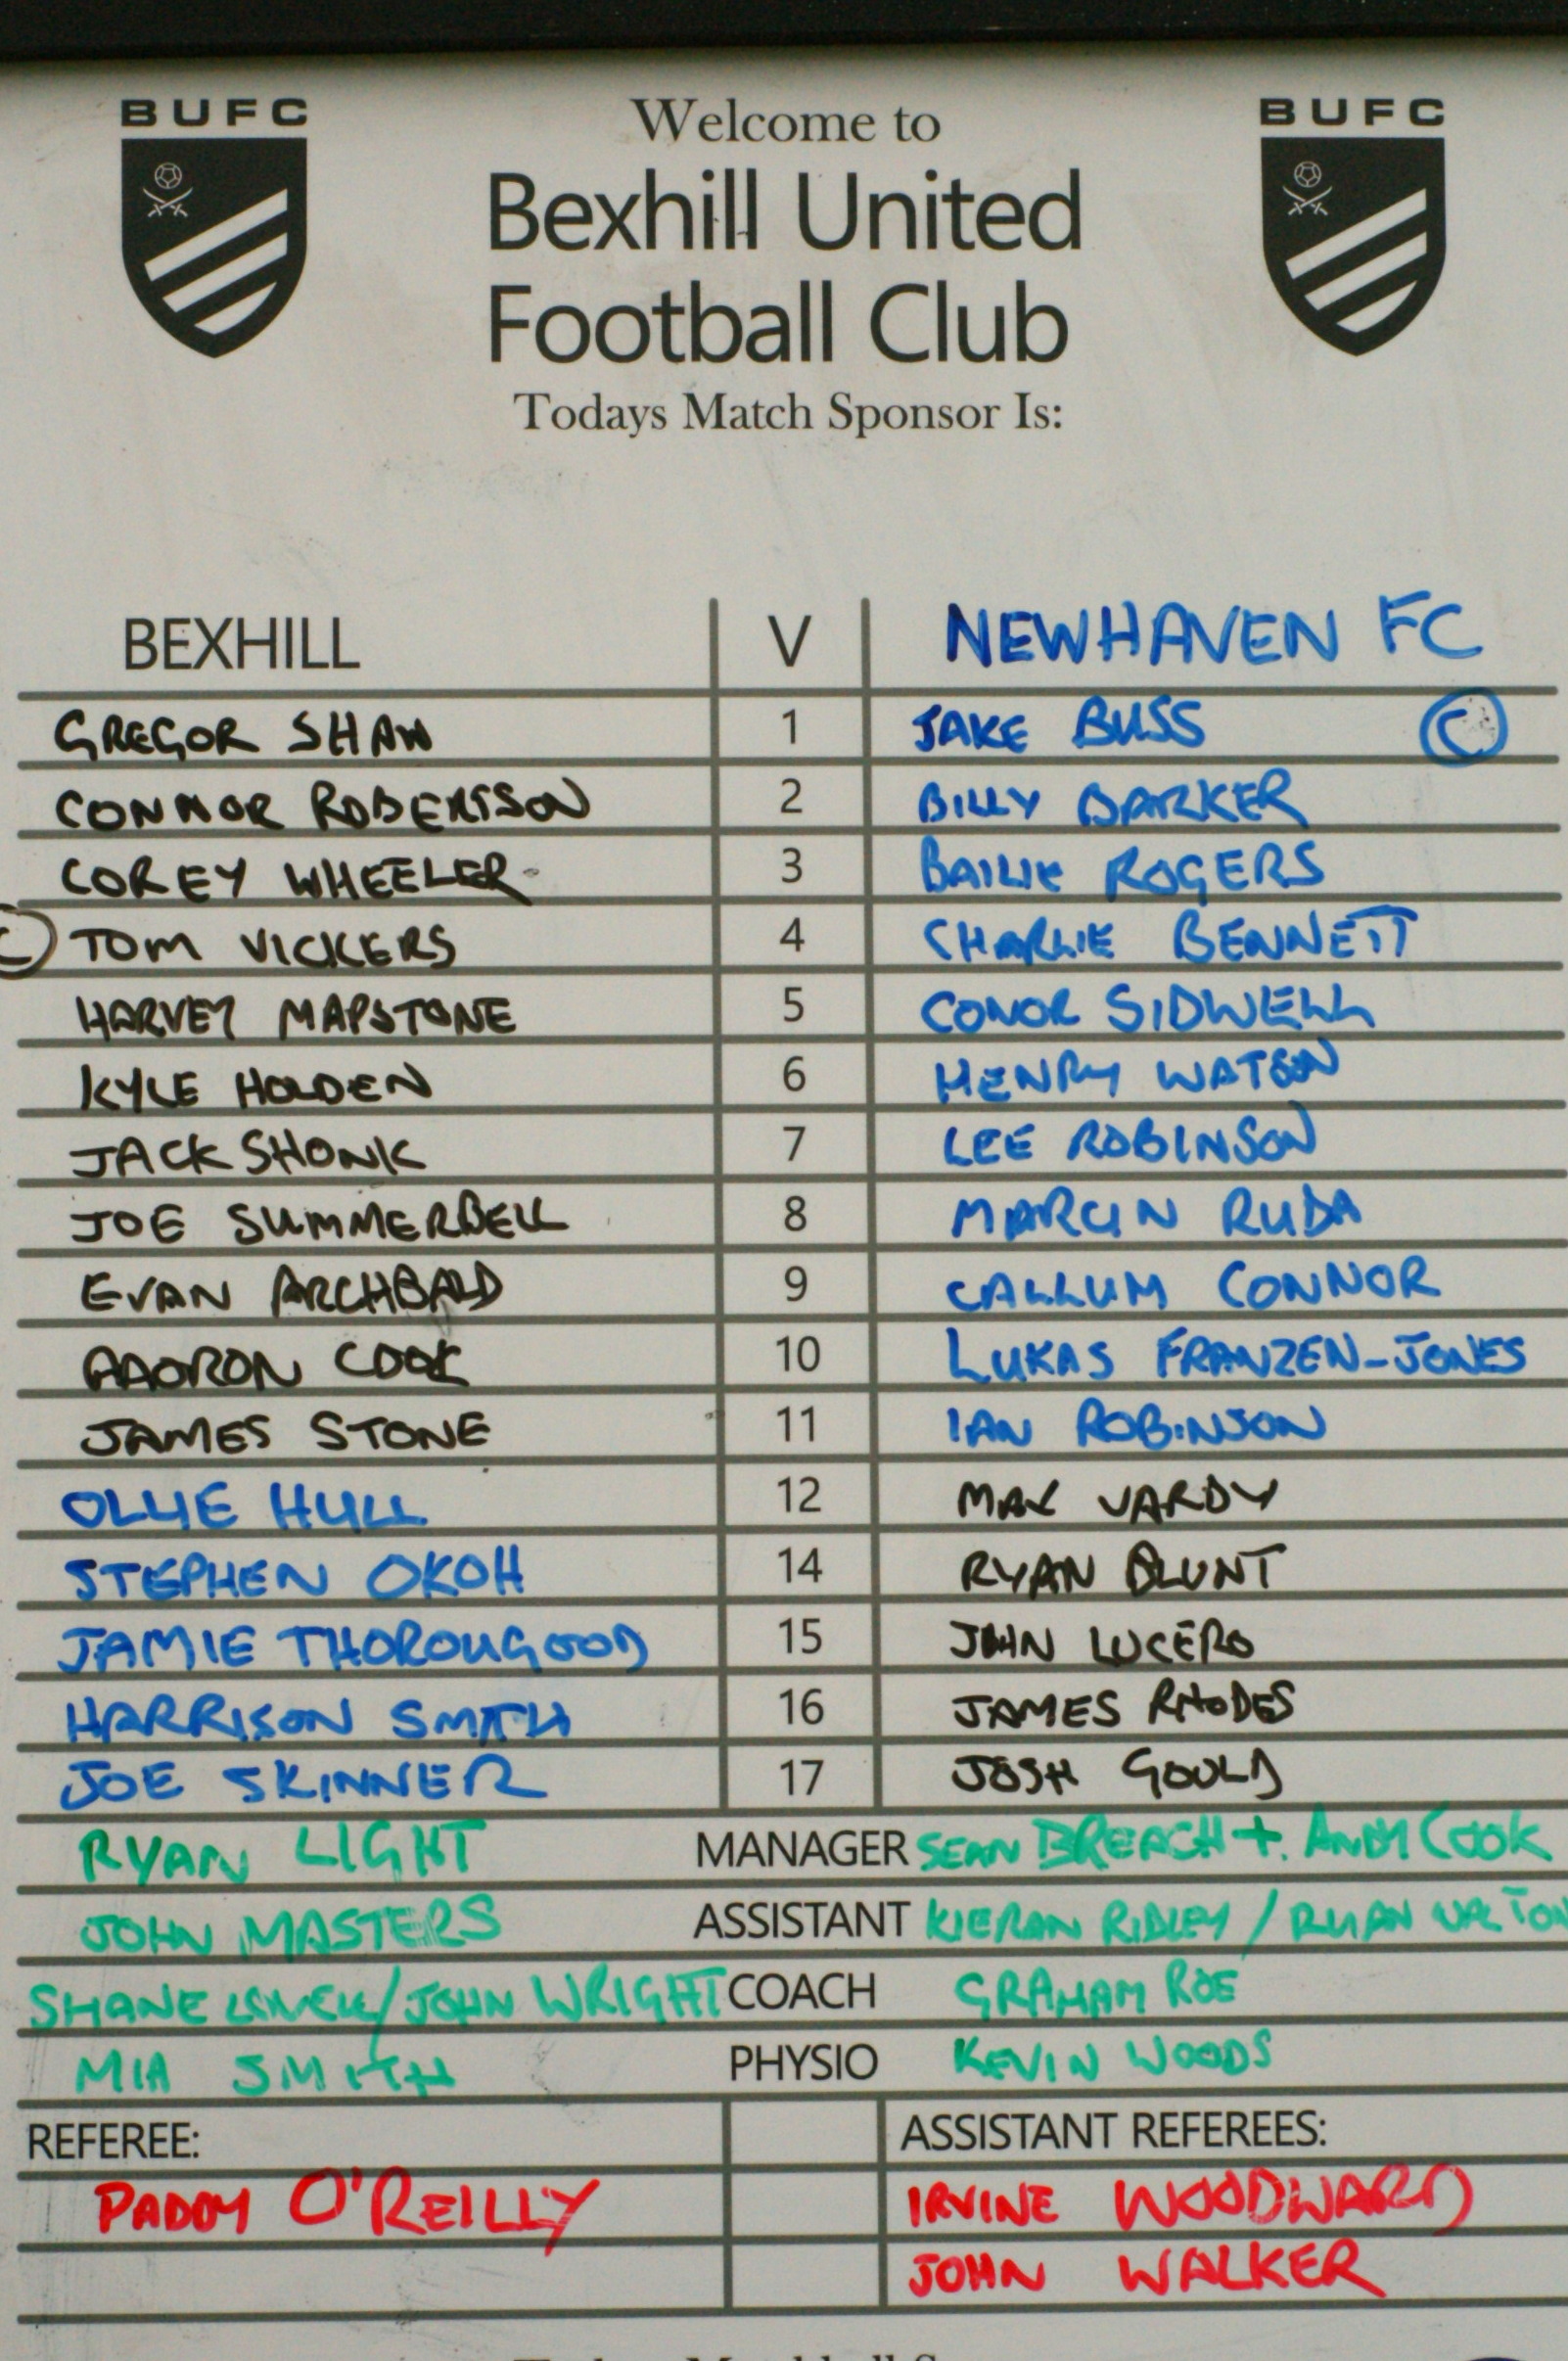 BUFC Welcome to BUFC
Bexhill United
Football Club
Todays Match Sponsor Is:
BEXHILL V NEWHAVEN FC
GREGOR SHAW 1 JAKE BUSS C
CONNOR ROBERTSON 2 BILLY BARKER
COREY WHEELER 3 BAILIE ROGERS
C TOM VICKERS 4 CHARLIE BENNETT
HARVEY MAPSTONE 5 CONOR SIDWELL
KYLE HOLDEN 6 HENRY WATSON
JACK SHONK 7 LEE ROBINSON
JOE SUMMERBELL 8 MARCIN RUDA
EVAN ARCHBALD 9 CALLUM CONNOR
AAORON COOK 10 LUKAS FRANZEN-JONES
JAMES STONE 11 IAN ROBINSON
OLLIE HULL 12 MAX VARDY
STEPHEN OKOH 14 RYAN BLUNT
JAMIE THOROUGOOD 15 JOHN LUCERO
HARRISON SMITH 16 JAMES RHODES
JOE SKINNER 17 JOSH GOULD
RYAN LIGHT MANAGER SEAN BREACH + ANDY COOK
JOHN MASTERS ASSISTANT KIERAN RIDLEY / RYAN WALTON
SHANE /JOHN WRIGHT COACH GRAHAM ROE
MIA SMITH PHYSIO KEVIN WOODS
REFEREE: ASSISTANT REFEREES:
PADDY O'REILLY IRVINE WOODWARD
JOHN WALKER